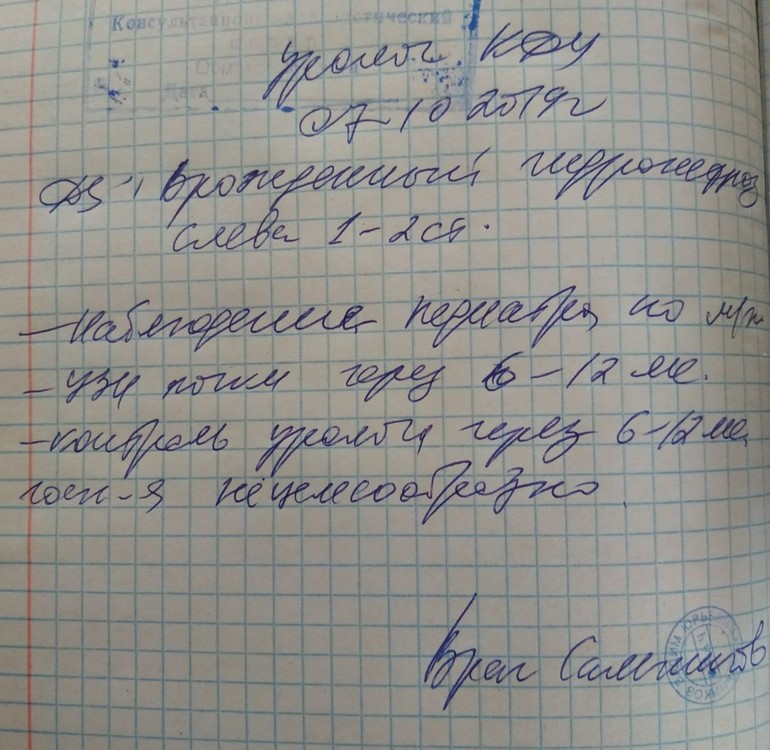 Консультационно
Дата
уролог КФУ
07 10 2019г
DS: Врожденный гидронефроз
слева 1-2 ст.
- Наблюдение педиатра по м/ж
- УЗИ почек через 6-12 ме.
- контроль уролога через 6-12 ме.
госп-я нецелесообразно.
Врач